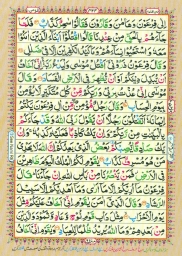 اِلٰى فِرْعَوْنَ وَهَامٰنَ وَقَارُوْنَ فَقَالُوْا سٰحِرٌ كَذَّابٌ فَلَمَّا
جَآءَهُمْ بِالْحَقِّ مِنْ عِنْدِنَا قَالُوا اقْتُلُوْٓا اَبْنَآءَ الَّذِيْنَ اٰمَنُوْا
مَعَهٗ وَاسْتَحْيُوْا نِسَآءَهُمْ وَمَا كَيْدُ الْكٰفِرِيْنَ اِلَّا فِيْ ضَلٰلٍ
وَقَالَ فِرْعَوْنُ ذَرُوْنِيْٓ اَقْتُلْ مُوْسٰى وَلْيَدْعُ رَبَّهٗ اِنِّيْٓ اَخَافُ
اَنْ يُّبَدِّلَ دِيْنَكُمْ اَوْ اَنْ يُّظْهِرَ فِي الْاَرْضِ الْفَسَادَ وَقَالَ
مُوْسٰٓى اِنِّيْ عُذْتُ بِرَبِّيْ وَرَبِّكُمْ مِّنْ كُلِّ مُتَكَبِّرٍ لَّا يُؤْمِنُ
بِيَوْمِ الْحِسَابِ وَقَالَ رَجُلٌ مُّؤْمِنٌ مِّنْ اٰلِ فِرْعَوْنَ يَكْتُمُ
اِيْمَانَهٗٓ اَتَقْتُلُوْنَ رَجُلًا اَنْ يَّقُوْلَ رَبِّيَ اللّٰهُ وَقَدْ جَآءَكُمْ
بِالْبَيِّنٰتِ مِنْ رَّبِّكُمْ وَاِنْ يَّكُ كَاذِبًا فَعَلَيْهِ كَذِبُهٗ وَاِنْ
يَّكُ صَادِقًا يُّصِبْكُمْ بَعْضُ الَّذِيْ يَعِدُكُمْ اِنَّ اللّٰهَ لَا يَهْدِيْ
مَنْ هُوَ مُسْرِفٌ كَذَّابٌ يٰقَوْمِ لَكُمُ الْمُلْكُ الْيَوْمَ ظٰهِرِيْنَ
فِي الْاَرْضِ فَمَنْ يَّنْصُرُنَا مِنْۢ بَاْسِ اللّٰهِ اِنْ جَآءَنَا قَالَ
فِرْعَوْنُ مَآ اُرِيْكُمْ اِلَّا مَآ اَرٰى وَمَآ اَهْدِيْكُمْ اِلَّا سَبِيْلَ
الرَّشَادِ وَقَالَ الَّذِيْٓ اٰمَنَ يٰقَوْمِ اِنِّيْٓ اَخَافُ عَلَيْكُمْ مِّثْلَ
يَوْمِ الْاَحْزَابِ مِثْلَ دَاْبِ قَوْمِ نُوْحٍ وَّعَادٍ وَّثَمُوْدَ وَالَّذِيْنَ
مِنْۢ بَعْدِهِمْ وَمَا اللّٰهُ يُرِيْدُ ظُلْمًا لِّلْعِبَادِ